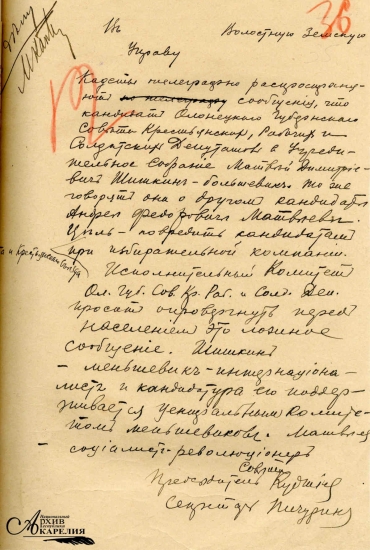 36
Въ Волостную Земскую
Управу
Кадеты телеграфно распространя-
ютъ сообщенія, что
кандидат Олонецкаго Губернскаго
Совѣта Крестьянских, Рабочих и
Солдатских Депутатов в Учреди-
тельное Собраніе Матвѣй Димитріе-
вич Шишкинъ - большевикъ. То же
говорятъ они о другом кандидатѣ
Андреѣ Федоровичѣ Матвѣевѣ.
Цѣль - повредить кандидатам
при избирательной компании.
Исполнительный Комитет
Ол. Губ. Сов. Кр. Раб. и Солд. Деп.
просит опровергнуть перед
населением это ложное
сообщение. Шишкинъ
- меньшевик-интернаціона-
листъ и кандидатура его поддер-
живается центральным комите-
том меньшевиков. Матвѣев
- соціалист-революціонеръ
Совѣта
Председатель
Секретарь Пичурин
Национальный
АРХИВ
Республики
КАРЕЛИЯ